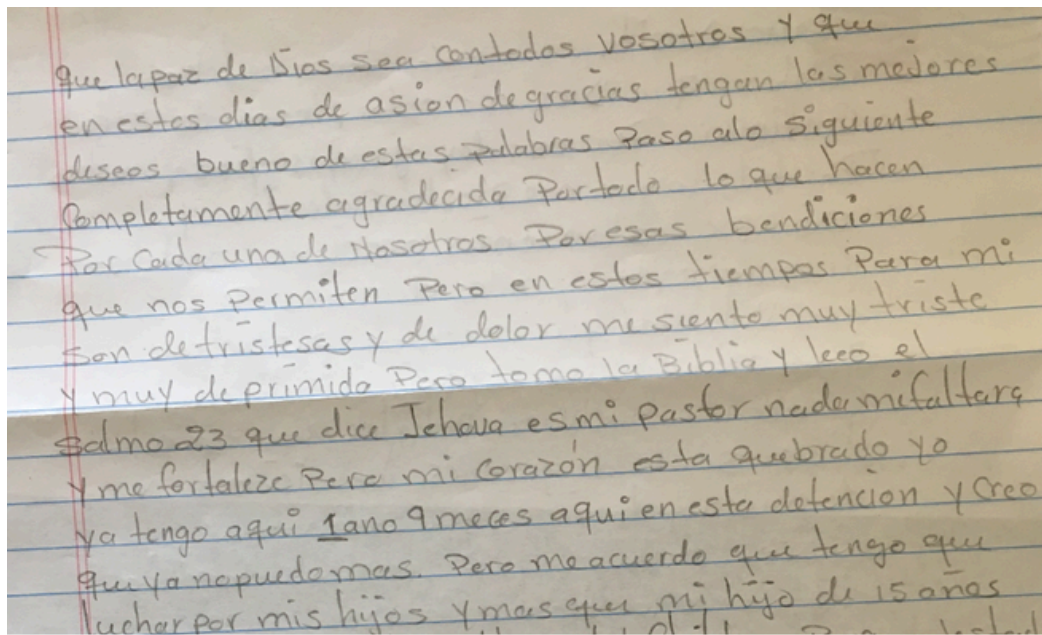 que lapaz de Dios sea contodos vosotros y que
en estos dias de asion de gracias tengan las mejores
deseos bueno de estas palabras Paso alo siguiente
Completamente agradecida Portodo lo que hacen
Por Cada una de Nosotros Por esas bendiciones
que nos Permiten Pero en estos tiempos Para mi
son de tristesas y de dolor me siento muy triste
y muy deprimida Pero tomo la Biblia y leeo el
Salmo 23 que dice Jehova es mi pastor nada mifaltara
y me fortaleze Pero mi corazón esta quebrado yo
ya tengo aqui 1 ano 9 meces aqui en esta detencion y Creo
que ya nopuedo mas. Pero me acuerdo que tengo que
luchar por mis hijos y mas que mi hijo de 15 años